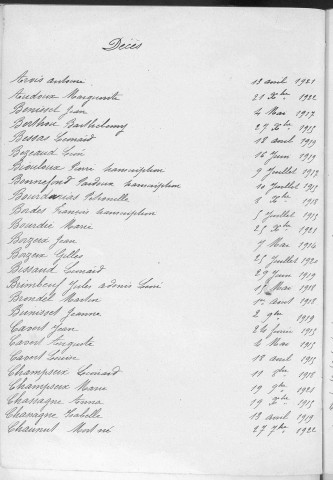 Décès
Arvis Antoine 13 avril 1921
Audoux Marguerite 21 Xbre 1922
Bonisset Jean 4 Mai 1917
Berthou Barthélemy 27 Xbre 1915
Bessas Léonard 18 avril 1919
Bezeaud Léon 16 Juin 1919
Pierre transcription 9 Juillet 1919
Bonnefond transcription 10 Juillet 1915
Bourdarias Petronille 8 Xbre 1918
Bordes François transcription 5 Juillet 1915
Bourdie Marie 25 Xbre 1921
Bozeux Jean 7 Mai 1914
Bozeux Gilles 25 Juillet 1920
Bissaud Léonard 29 Juin 1919
Brimbeuf Jules Léon 18 Mai 1918
Brondel Martin 1er aout 1918
Bunisset Jeanne 2 9bre 1919
Cavert Jean 26 fevrier 1915
Cavert Auguste 4 Mai 1915
Cavert Louise 18 avril 1915
Champeux Léonard 11 8bre 1918
Champeux Marie 19 9bre 1921
Chanagne Anna 19 Xbre 1915
Chanagne Isabelle 13 avril 1919
Chaunut Mort né 27 7bre 1922